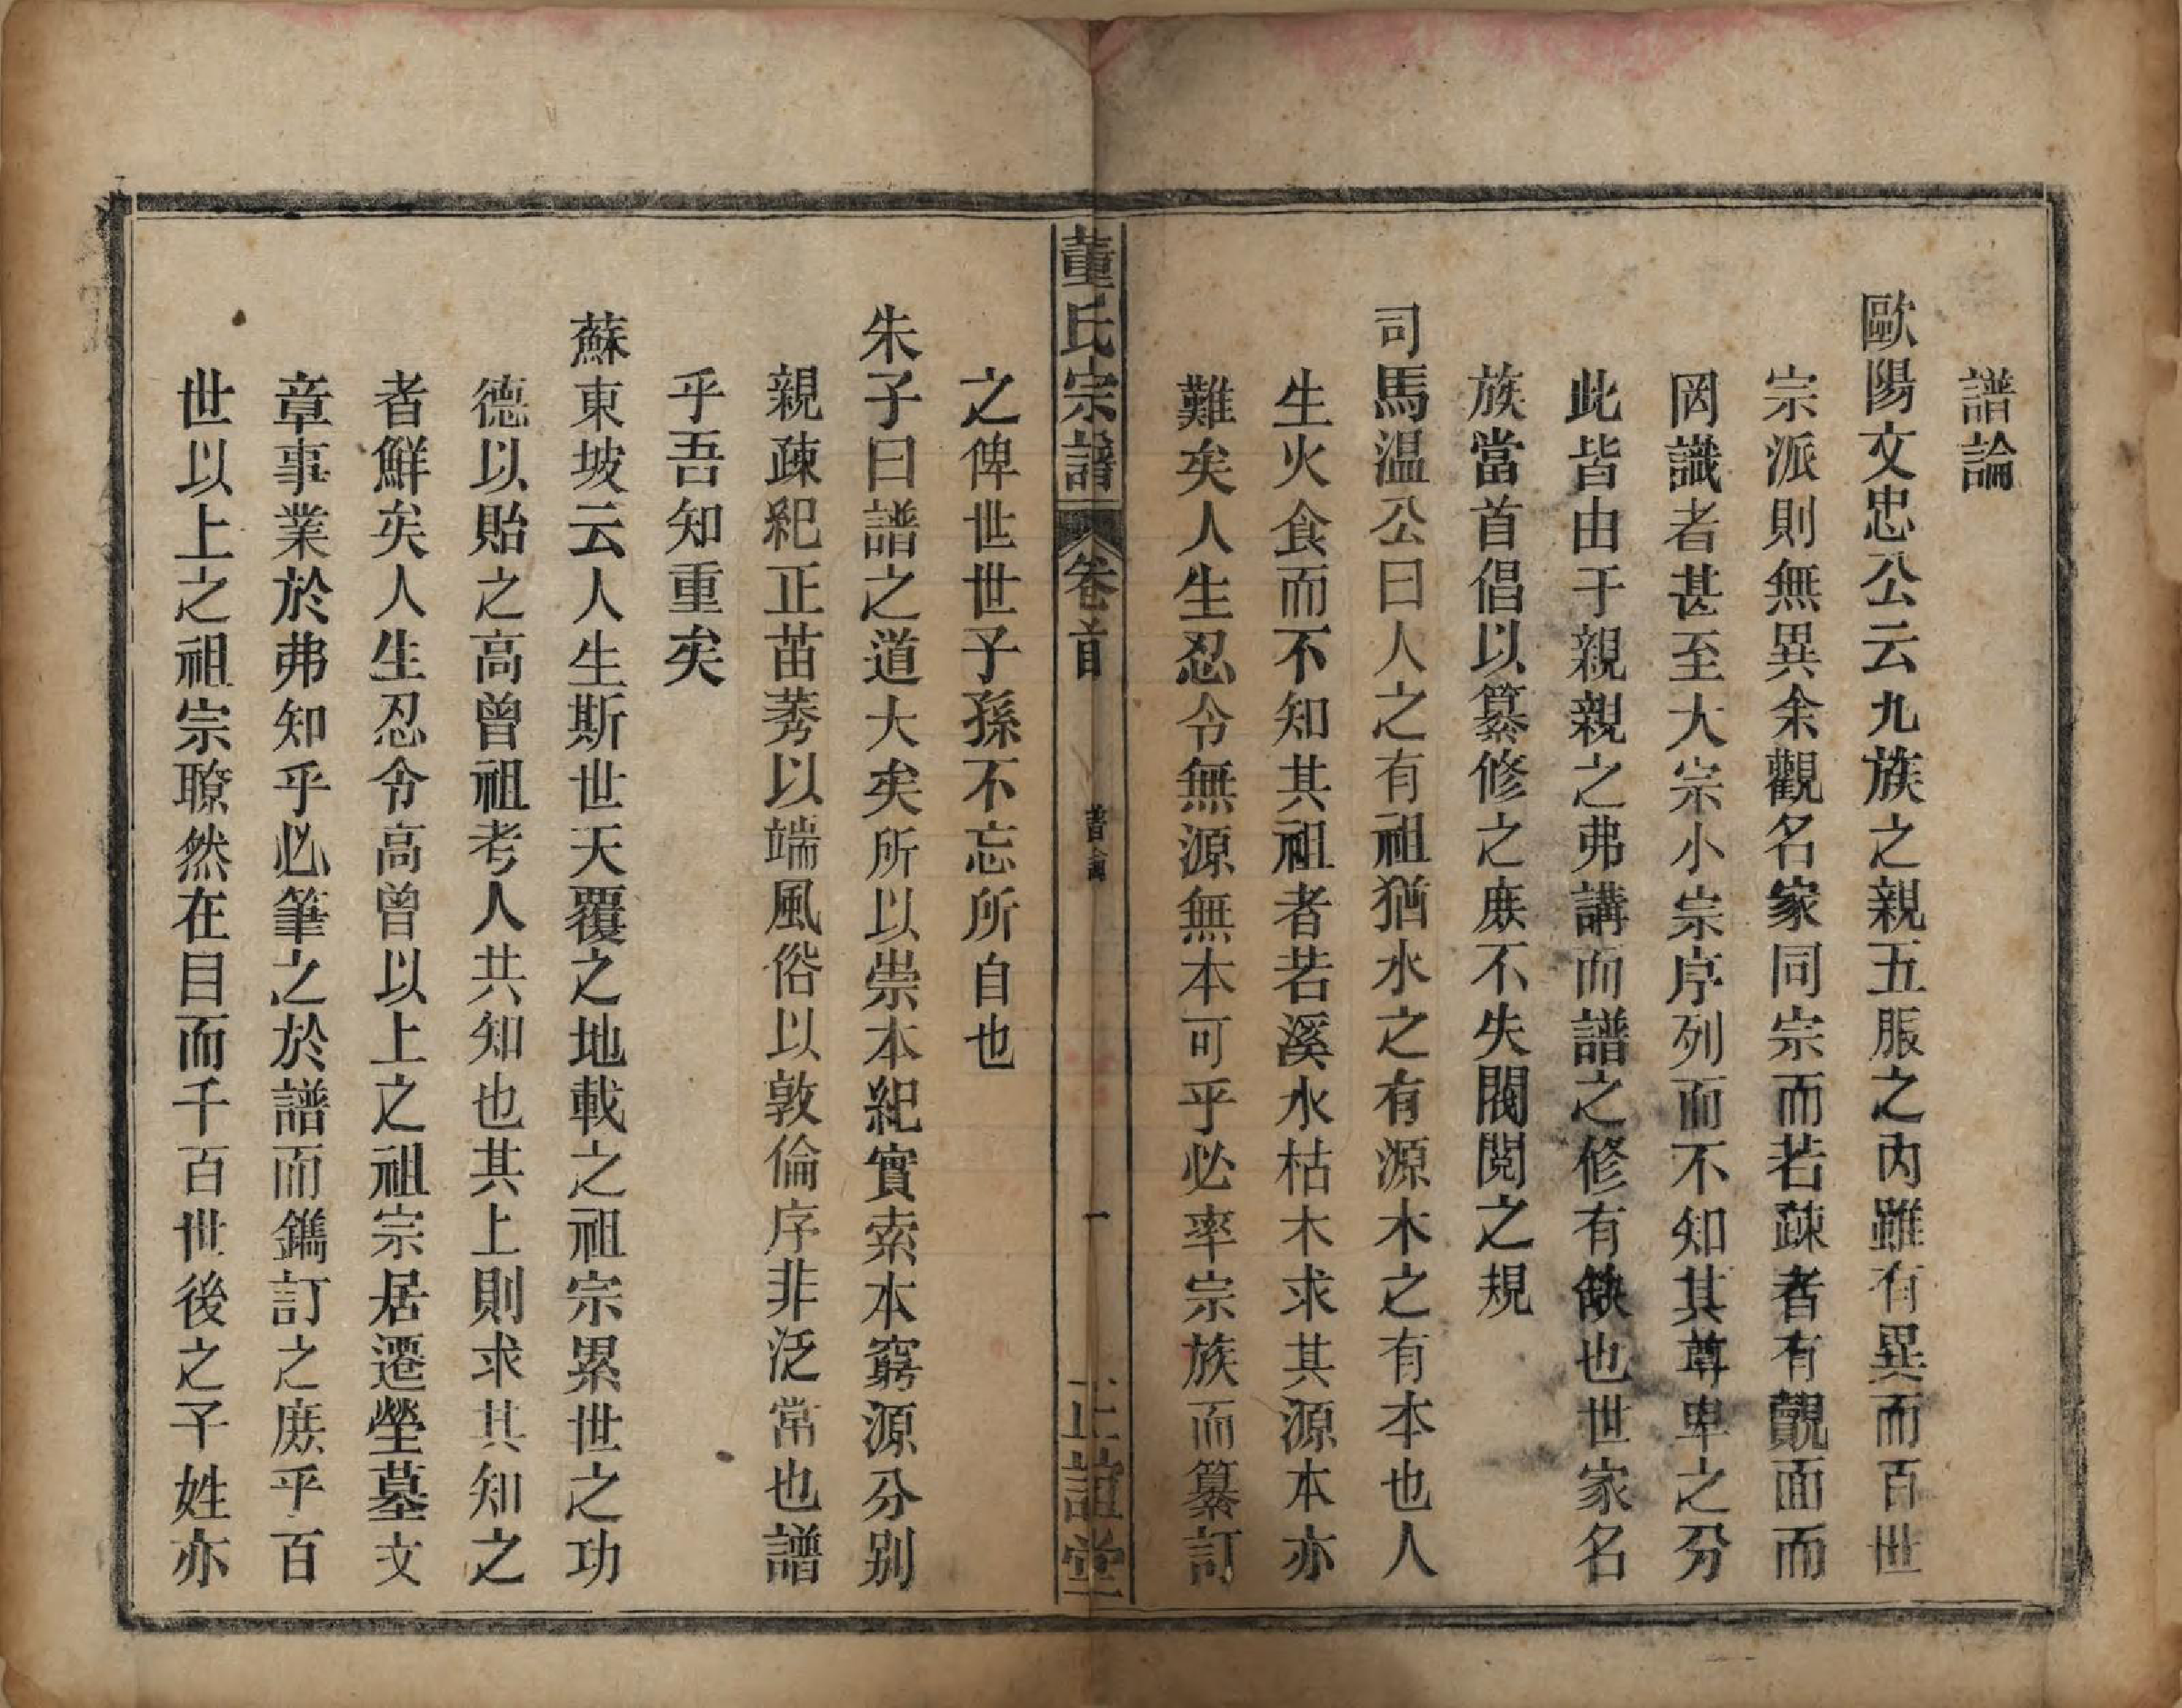 譜論
歐陽文忠公云九族之親五服之內雖有異而百世
宗派則無異余觀名家同宗而若疎者有覿面而
罔識者甚至大宗小宗序列而不知其尊卑之分
此皆由于親親之弗講而譜之修有缺也世家名
族當首倡以纂修之庶不失閥閱之規
司馬温公曰人之有祖猶水之有源木之有本也人
生火食而不知其祖者若溪水枯木求其源本亦
難矣人生忍令無源無本可乎必率宗族而纂訂
董氏宗譜 卷首 譜論 一 正誼堂
之俾世世子孫不忘所自也
朱子曰譜之道大矣所以崇本紀實索本窮源分别
親疎紀正苗莠以端風俗以敦倫序非泛常也譜
乎吾知重矣
蘇東坡云人生斯世天覆之地載之祖宗累世之功
德以貽之高曾祖考人共知也其上則求其知之
者鮮矣人生忍令高曾以上之祖宗居遷塋墓文
章事業於弗知乎必筆之於譜而鐫訂之庶乎百
世以上之祖宗瞭然在目而千百世後之子姓亦